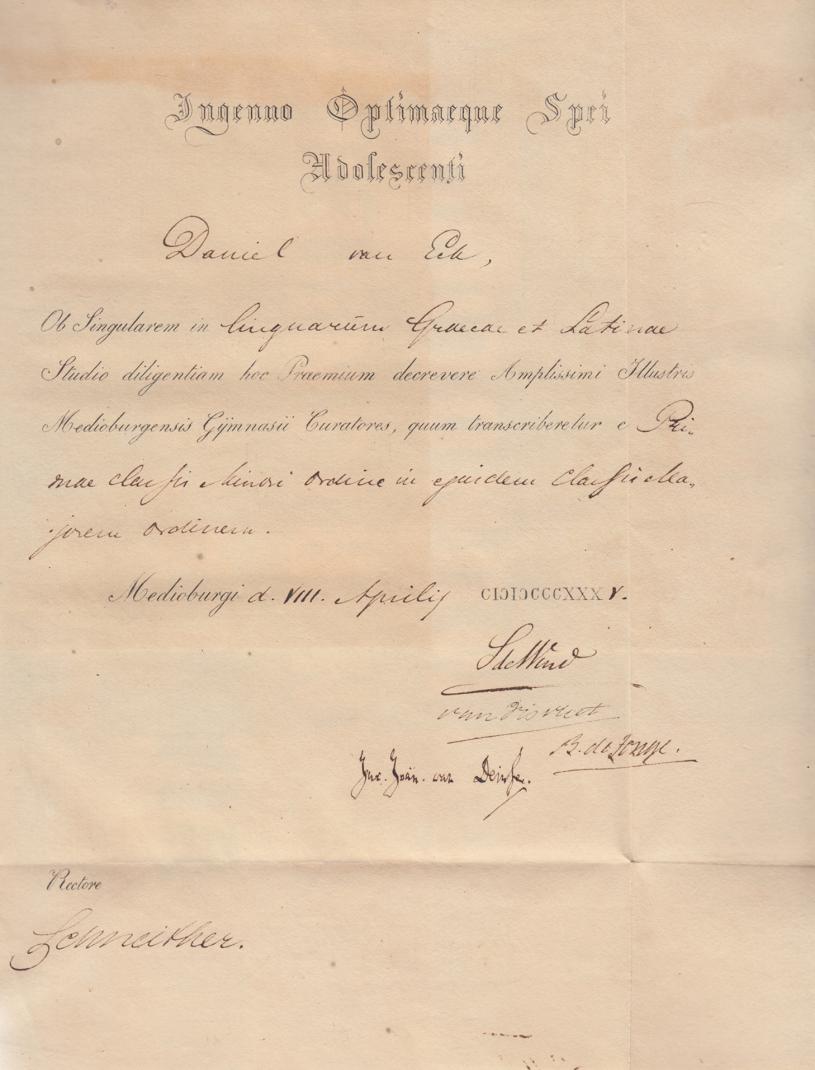 Ingenuo Optimaeque Spei
Adolescenti
Daniel van Eck,
Ob Singularem in linguarum Graecae et Latinae
Studio diligentiam hoc Praemium decrevere Amplissimi Illustris
Medioburgensis Gymnasii Curatores, quum transcriberetur e Pri-
mae classis Minori Ordine in ejusdem Classis Ma-
jorem Ordinem.
Medioburgi d. VIII. Aprilis CIƆIƆCCCXXXV.
S de Wind
van
B. de Jonge.
van
Rectore
Schneither.